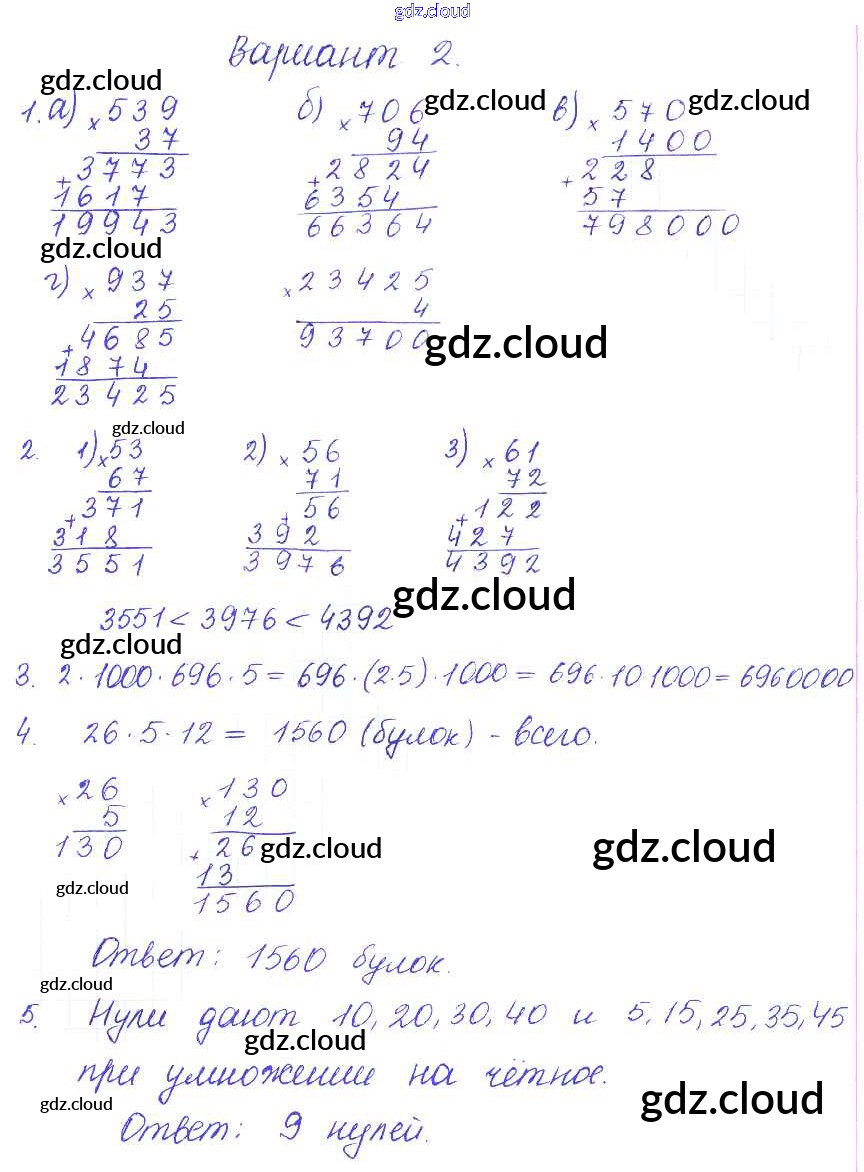 gdz.cloud
Вариант 2.
gdz.cloud gdz.cloud gdz.cloud
1. а) × 539 б) × 706 в) × 570
37 94 1400
+ 3773 + 2824 + 228
1617 6354 57
19943 66364 798000
gdz.cloud
г) × 937 × 23425
25 4
+ 4685 93700
gdz.cloud
1874
23425
gdz.cloud
2. 1) × 53 2) × 56 3) × 61
67 71 72
+ 371 + 56 + 122
318 392 427
3551 3976 4392
gdz.cloud
3551 < 3976 < 4392
gdz.cloud
3. 2 · 1000 · 696 · 5 = 696 · (2·5) · 1000 = 696 · 10 1000 = 6960000
4. 26 · 5 · 12 = 1560 (булок) - всего.
× 26 × 130
5 12
130 + 26
gdz.cloud gdz.cloud
13
gdz.cloud
1560
Ответ: 1560 булок.
gdz.cloud
5. Нули дают 10, 20, 30, 40 и 5, 15, 25, 35, 45
gdz.cloud
при умножении на чётное.
gdz.cloud gdz.cloud
Ответ: 9 нулей.